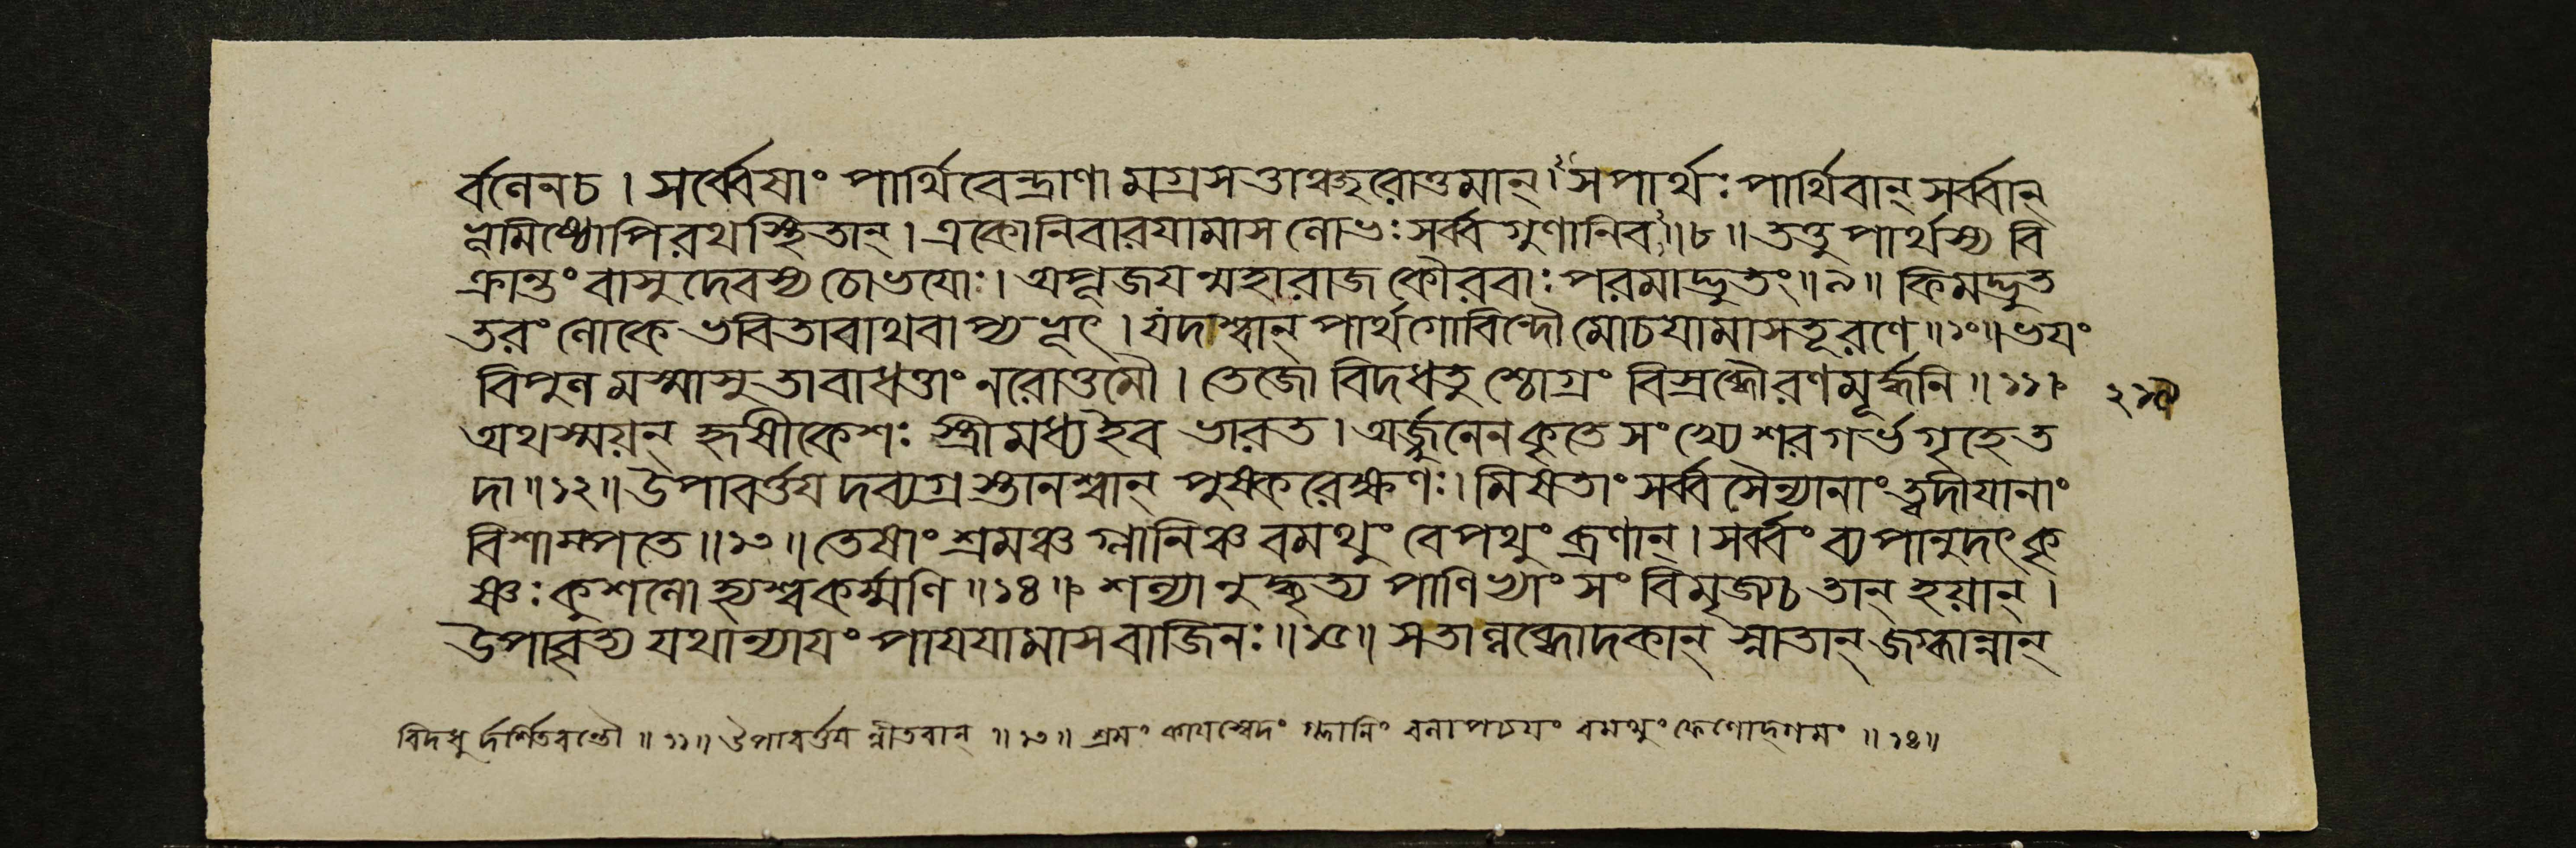 র্বণেনচ । সর্ব্বেষাং পার্থিবেন্দ্রাণা মগ্রসত্তাঞ্চুরোত্তমান্ । সপার্থঃ পার্থিবান্ সর্ব্বান্
ভূমিষ্ঠোপিরথস্থিতান্ । একোনিবারযামাস লোভঃ সর্ব্ব গুণানিব ॥ ৮ ॥ তত্তু পার্থস্য বি
ক্রান্তং বাসুদেবস্য চোভযোঃ । অপূজযন্মহারাজ কৌরবাঃ পরমাদ্ভুতং ॥ ৯ ॥ কিমদ্ভুত
তরং লোকে ভবিতাবাথবাপ্যভূৎ । যদাশ্বান্ পার্থগোবিন্দৌ মোচযামাসতূরণে ॥ ১০ ॥ ভযং
বিপুল মস্মাসু তাবাধত্তাং নরোত্তমৌ । তেজো বিদধতু শ্চোগ্রং বিস্রব্ধৌরণমূর্দ্ধনি ॥ ১১ ॥
অথস্ময়ন্ হৃষীকেশঃ স্ত্রীমধ্যইব ভারত । অর্জ্জুনেনকৃতে সংখ্যে শরগর্ভগৃহেত
দা ॥ ১২ ॥ উপাবর্ত্তয দব্যগ্রস্তানশ্বান্ পুষ্করেক্ষণঃ । মিষতাং সর্ব্বসৈন্যানাং ত্বদীযানাং
বিশাম্পতে ॥ ১৩ ॥ তেষাং শ্রমঞ্চ গ্লানিঞ্চ বমথুং বেপথুং ব্রণান্ । সর্ব্বং ব্যপানুদৎ কৃ
ষ্ণঃ কুশলো হ্যশ্বকর্ম্মণি ॥ ১৪ ॥ শল্যানুদ্ধৃত্য পাণিভ্যাং সং বিমৃজ্যচ তান্ হয়ান্ ।
উপাবৃত্য যথান্যাযং পাযযামাস বাজিনঃ ॥ ১৫ ॥ সতাল্লব্ধোদকান্ স্নাতান্ জগ্ধান্নান্
বিদধু র্দর্শিতবন্তৌ ॥ ১১ ॥ উপাবর্ত্তয ন্নীতবান্ ॥ ১৩ ॥ শ্রমং কাযস্বেদং গ্লানিং বলাপচযং বমথুং ফেণোদ্গমং ॥ ১৪ ॥